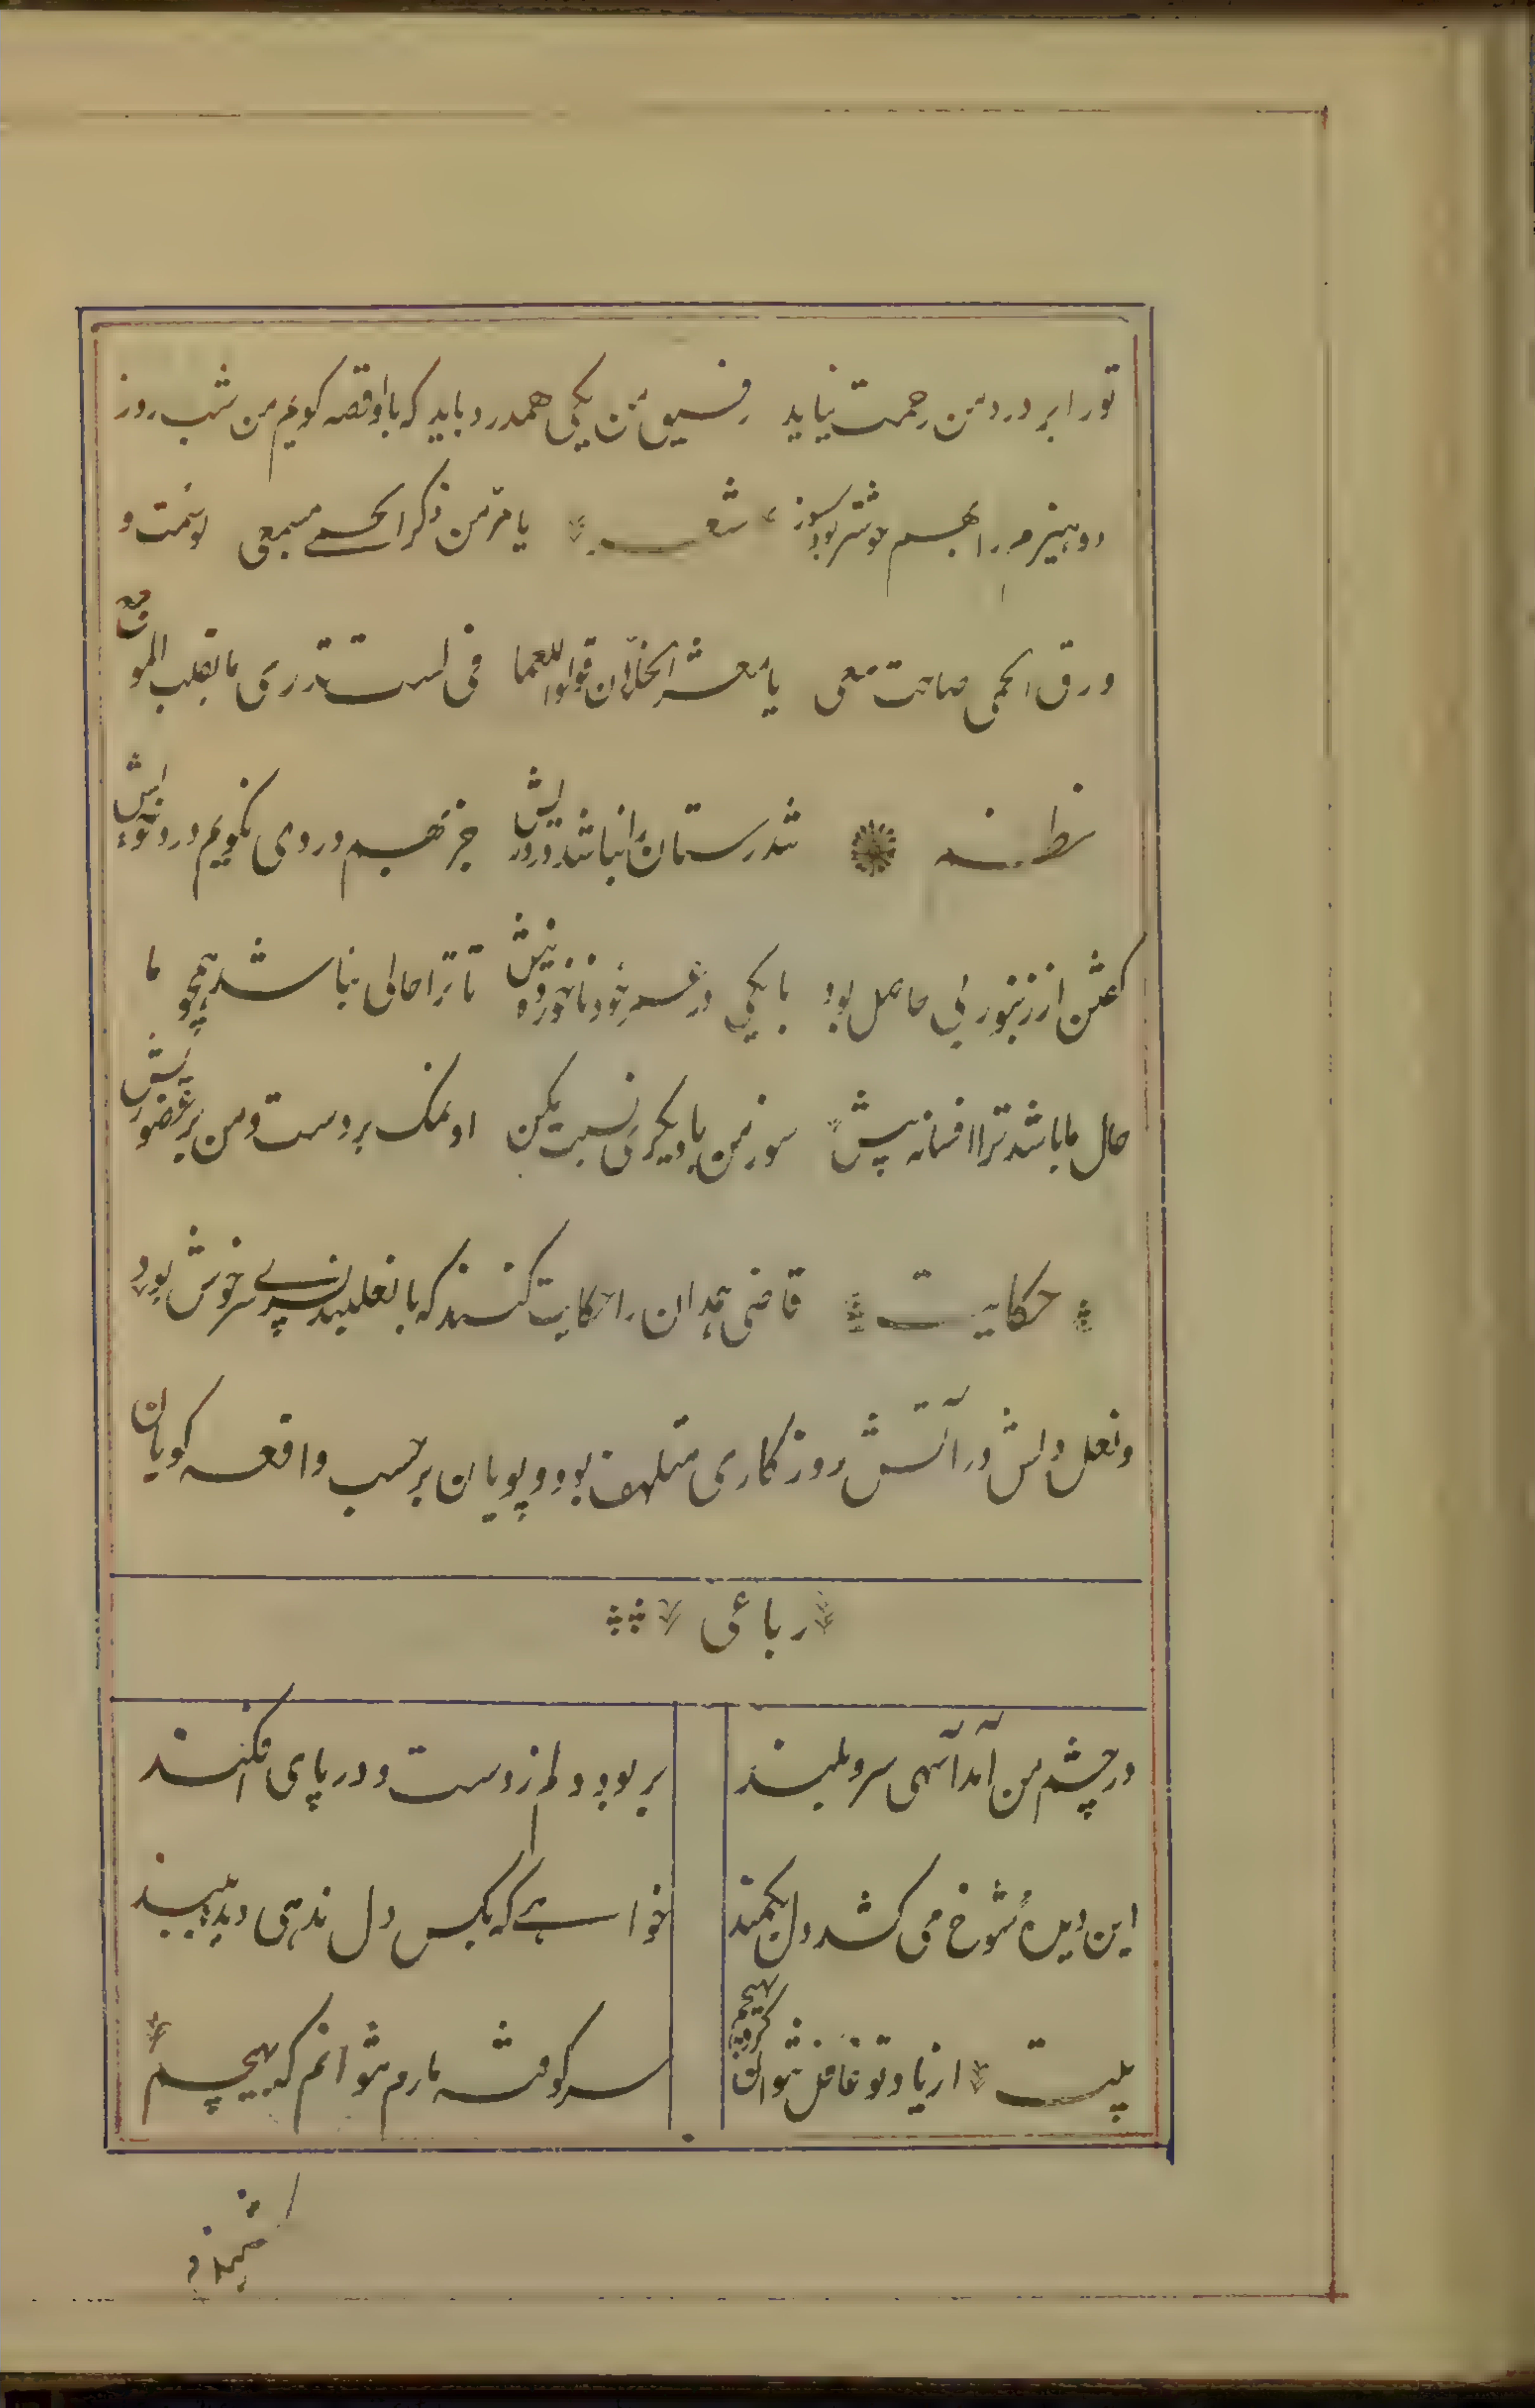 تو را بر درد من رحمت نیاید رفیق من یکی همدرد باید که با او قصه گویم من شب روز
دو هیزم را بهم خوشتر بود سوز شعر یا مر من ذکر الحمی مسمعی لو سمعت و
ورق الحمی صاحت معی یا معشر الخلان قولوا للمعا فی لست تدری ما بقلب الموجع
نظم تندرستان را نباشد درد ریش جز بهم دردی نگویم درد خویش
گفتن از زنبور بی حاصل بود با یکی در عمر خود ناخورده نیش تا ترا حالی نباشد همچو ما
حال ما باشد ترا افسانه پیش سوز من با دیگری نسبت مکن او نمک بر دست و من بر عضو ریش
حکایت قاضی همدان را حکایت کنند که با نعلبند پسری سرخوش بود
و نعل دلش در آتش روزگاری متلهف بود و پویان بر حسب واقعه گویان
رباعی
در چشم من آمد آن سهی سرو بلند بربود دلم ز دست و در پای افکند
این دیده شوخ می کشد دل بکمند خواهی که بکس دل ندهی دیده ببند
بیت از یاد تو غافل نتوان کرد بهیچم سر کوفته مارم نتوانم که نپیچم
شنیدم